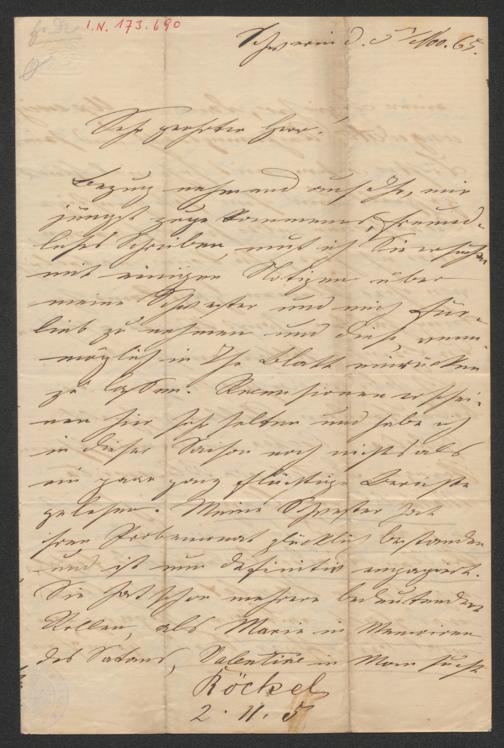 I.N. 173.690
Schwerin d. 5t Nov. 65.
Sehr geehrter Herr!
Bezug nehmend auf Ihr, mir
jüngst zugekommenes, freund-
liches Schreiben, muß ich Sie ersuchen
mit einigen Notizen über
meine Schwester und mich für-
lieb zu nehmen und diese, wenn
möglich in Ihr Blatt einrücken
zu lassen. Recensionen erschei-
nen hier sehr selten und habe ich
in dieser Saison noch nichts als
ein paar ganz flüchtige Berichte
gelesen. Meine Schwester hat
ihren Probemonat glücklich bestanden
und ist nun definitiv engagirt.
Sie hat schon mehrere bedeutendere
Rollen, als Marie in Memoiren
des Satans, Valentine in Man sucht
Röckel
2. 11. 5